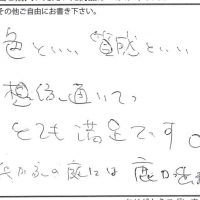 その他ご自由にお書き下さい。
色といい 質感といい
想像通いで
とても満足です。
我が家の庭には 鹿が